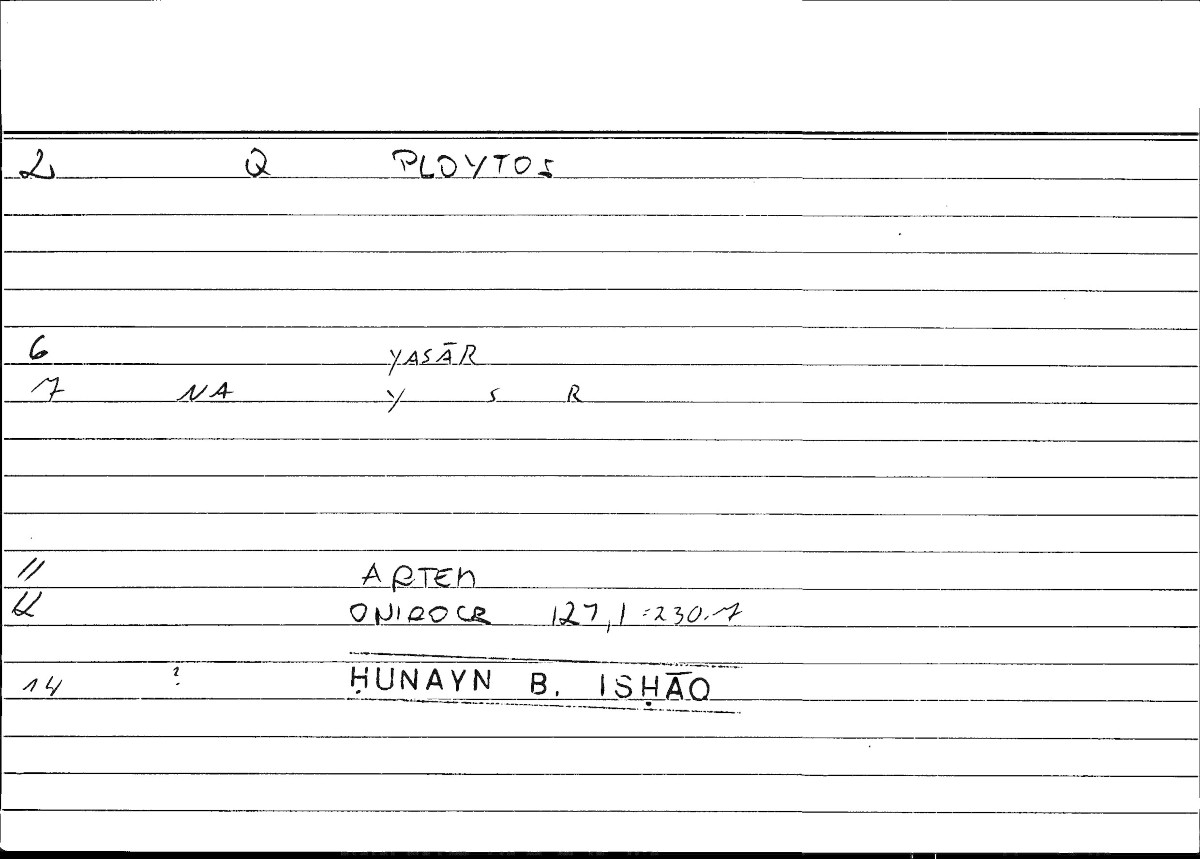 2 Q PLOYTOS
6 YASĀR
7 NA Y S R
11 ARTEM
12 ONIROCR 127,1 = 230.7
14 ? ḤUNAYN B. ISḤĀQ